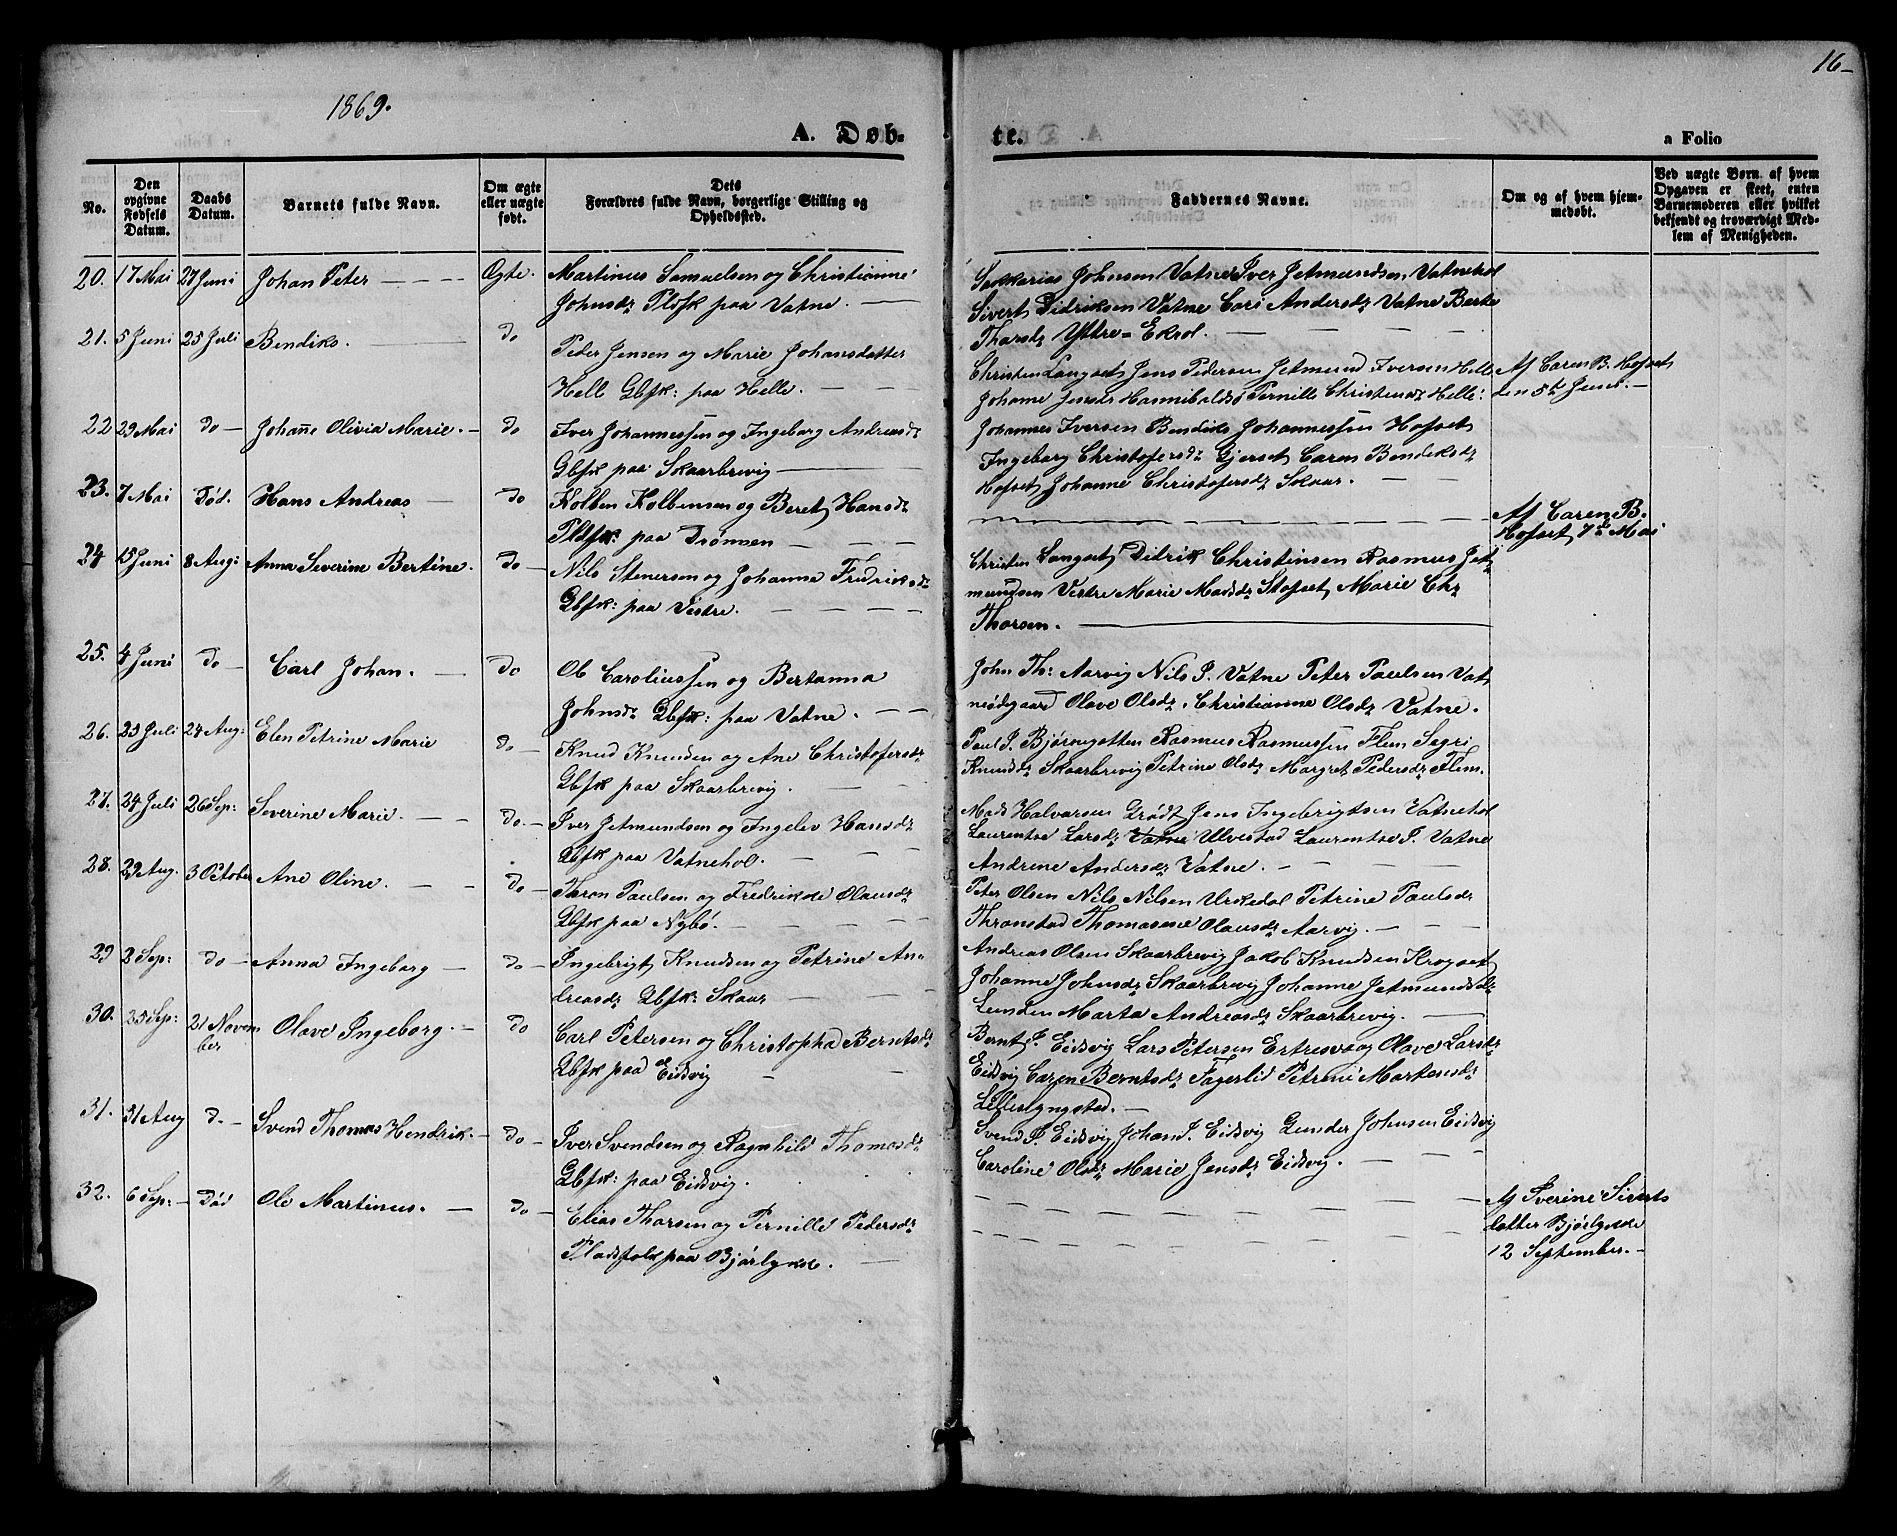 16-
1869.
A. Døb-
te.
a Folio
No.
Den opgivne Fødsels Datum.
Daabs Datum.
Barnets fulde Navn.
Om ægte eller uægte født.
Dets Forældres fulde Navn, borgerlige Stilling og Opholdssted.
Faddernes Navne.
Om og af hvem hjemmedøbt.
Ved uægte Børn, af hvem Opgaven er skeet, enten Barnemoderen eller hvilket bekjendt og troværdigt Medlem af Menigheden.
20. 17 Mai 27 Juni Johan Peter Ægte. Martinus Samuelsen og Christianne
Johnsdr Plsfk paa Vatne.
Sakkarias Johnsen Vatne Iver Jetmundsen Vatnehol
Sivert Didriksen Vatne Cari Andersdr Vatne Berte
Thorsdr Yttre-Eksol.
21. 5 Juni 25 Juli Bendiks. Do Peder Jensen og Marie Johansdatter
Hell Gbfk: paa Helle.
Christen Langset Jens Pedersen Jetmund Iversen Helle
Johanne Jensdr Hannibalds Pernille Christensdr Helle.
Af Caren B. Hofset
den 5te Juni.
22 29 Mai do Johanne Olivia Marie. do Iver Johannessen og Ingeborg Andreasdr
Gbfk paa Skaarbrevig
Johannes Iversen Bendiks Johannessen Hofset
Ingeborg Christofersdr Gjerset Caren Bendiksdr
Hofset Johanne Christofersdr Skaar.
23. 7 Mai Død. Hans Andreas do Kolben Kolbensen og Beret Hansdr
Plsfk: paa Drønnen
Af Caren B.
Hofset 7de Mai
24 15 Juni 8 Augi Anna Severine Bertine. do Nils Stenersen og Johanna Fredriksdr
Gbfk: paa Vestre.
Christen Langset Didrik Christensen Rasmus Jet-
mundsen Vestre Marie Madsdr Stofset Marie Chr
Thorsen.
25. 4 Juni do Carl Johan. do Ole Caroliussen og Bertanna
Johnsdr Gbfk: paa Vatne.
John Th: Aarvig Nils P. Vatne Peter Paulsen Vat-
neødegaard Olave Olsdr. Christianne Olsdr Vatne.
26. 23 Juli 24 Aug: Elen Petrine Marie do Knud Knudsen og Ane Christofersdr
Gbfk paa Skaarbrevig.
Paul J. Bjørngotten Rasmus Rasmussen Flem Segri
Knudsdr Skaarbrevig Petrine Olsdr Margret Pedersdr Flem.
27. 24 Juli 26 Sep: Severine Marie. do. Iver Jetmundsen og Ingelev Hansdr
Gbfk paa Vatnehol.
Mads Halvorsen Grødt Jens Ingebrigtsen Vatnehol
Laurentse Larsdr Vatne Ulvestad Laurentse P. Vatne
Andrine Andersdr Vatne.
28. 29 Aug. 3 October Ane Oline. do Thron Paulsen og Fredrikke Olausdr
Gbfk paa Nybø.
Peter Olsen Nils Nilsen Urkedal Petrine Paulsdr
Thronstad Thomasine Olausdr Aarvig.
29 2 Sep: do Anna Ingeborg do Ingebrigt Knudsen og Petrine An-
dreasdr Gbfk: Skaar
Andreas Olsen Skaarbrevig Jakob Knudsen Krogset
Johanne Johnsdr Skaarbrevig Johanne Jetmundsdr
Lunden Marta Andreasdr Skaarbrevig.
30. 25 Sep: 21 Novem
ber Olave Ingeborg. do Carl Petersen og Christopha Berntsdr
Gbfk paa Eidsvig
Bernt J. Eidsvig Lars Petersen Ertresvaag Olave Larsdr
Eidsvig Caren Berntsdr Fagerlid Petrine Martensdr
Lillelyngstad.
31. 31 Aug do Svend Thomas Hendrik. do Iver Svendsen og Ragnhild Thomasdr
Gbfk: paa Eidsvig.
Svend P. Eidsvig Johan J. Eidsvig Gunder Johnsen Eidsvig
Caroline Olsdr Marie Jensdr Eidsvig.
32. 6 Sep: Død Ole Martinus. do Elias Thorsen og Pernille Pedersdr
Pladsfolk paa Bjørlykke.
Af Iverine Siverts
datter Bjørlykke
12 September.